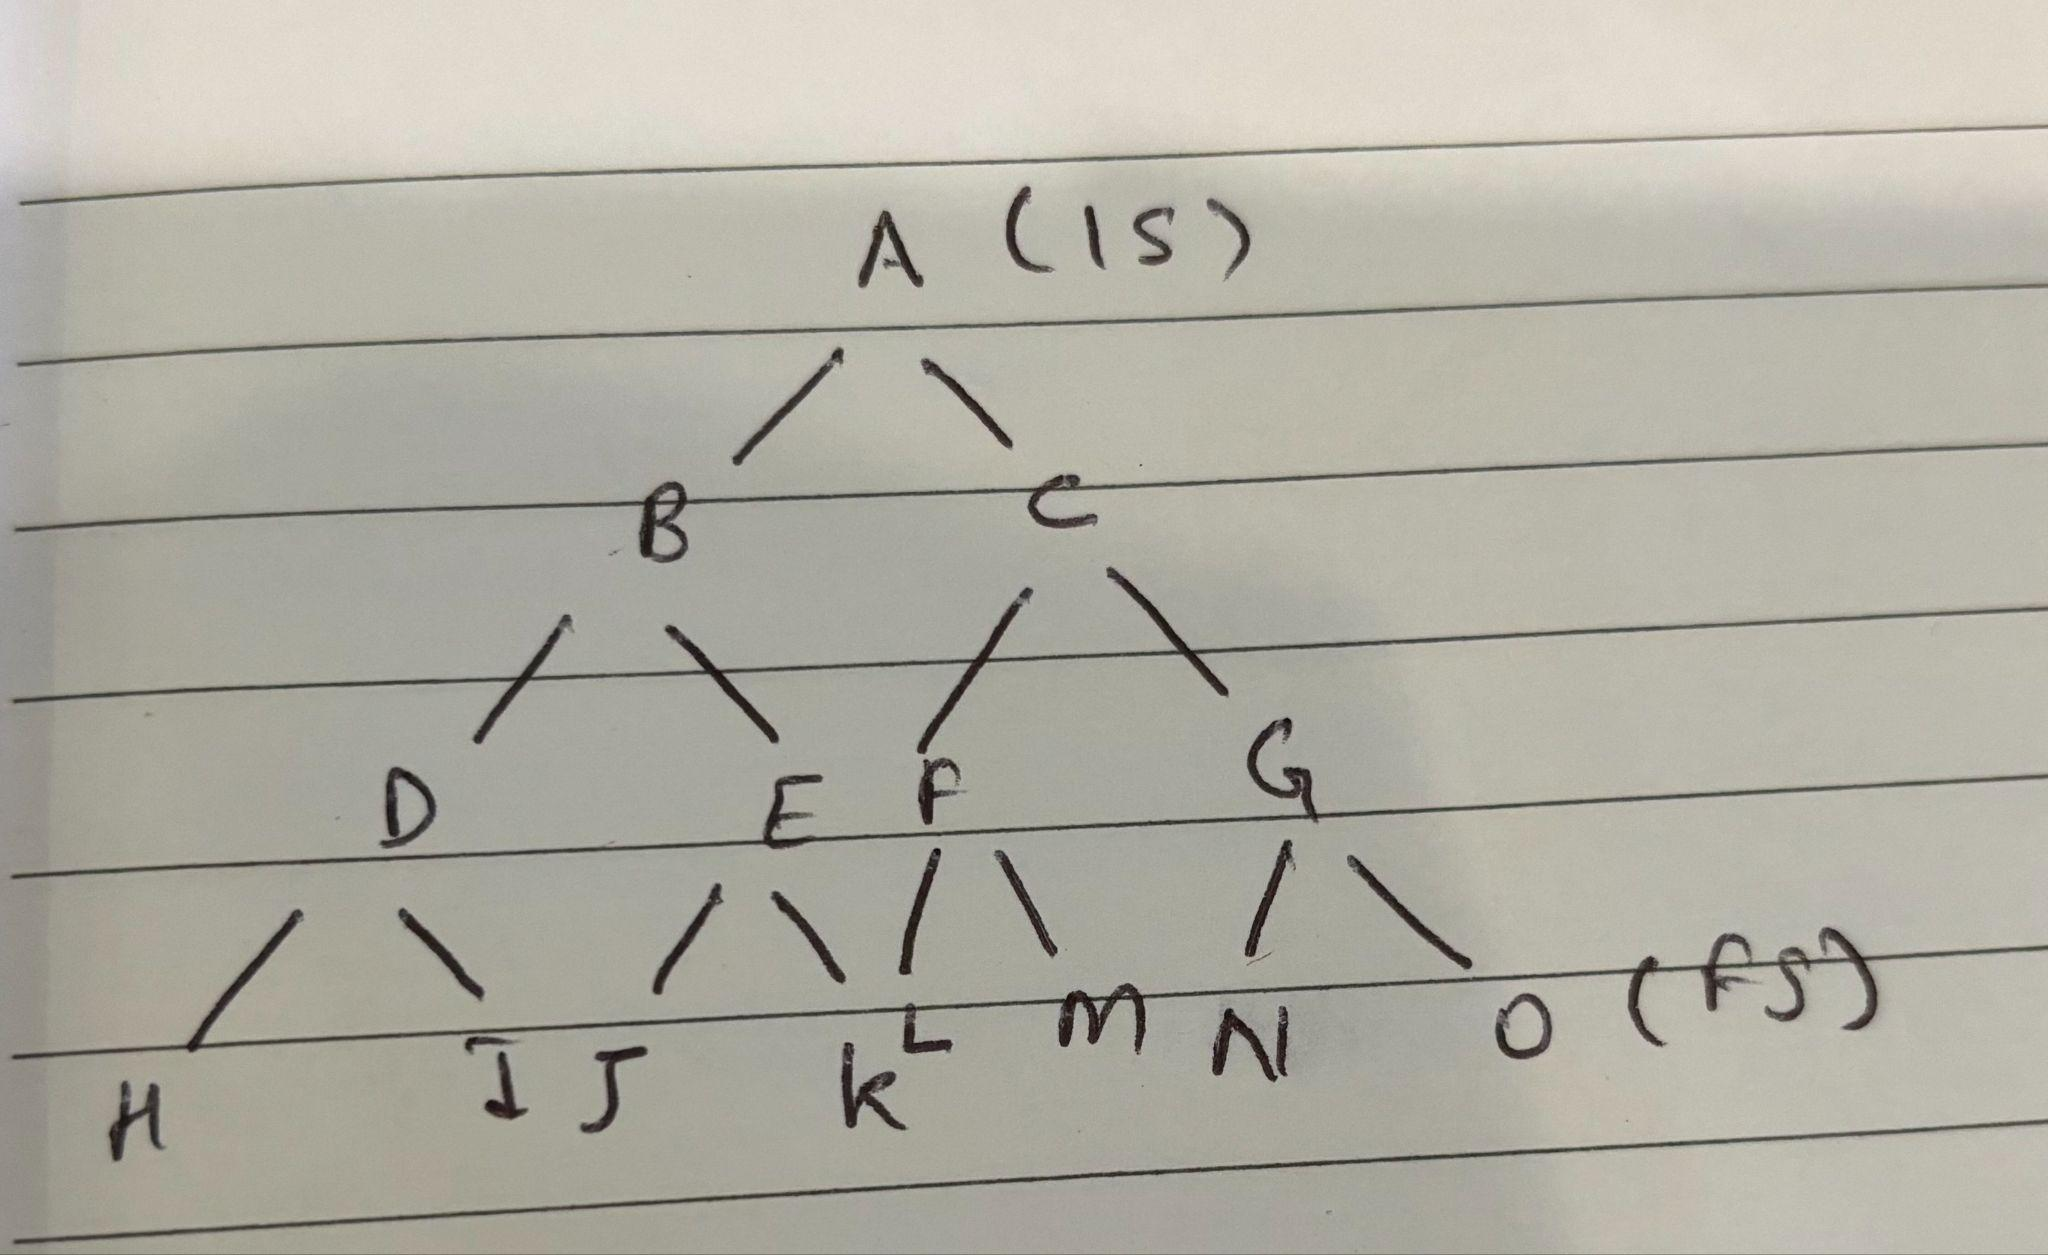 A (IS)
B C
D E F G
H I J K L M N O (FS)